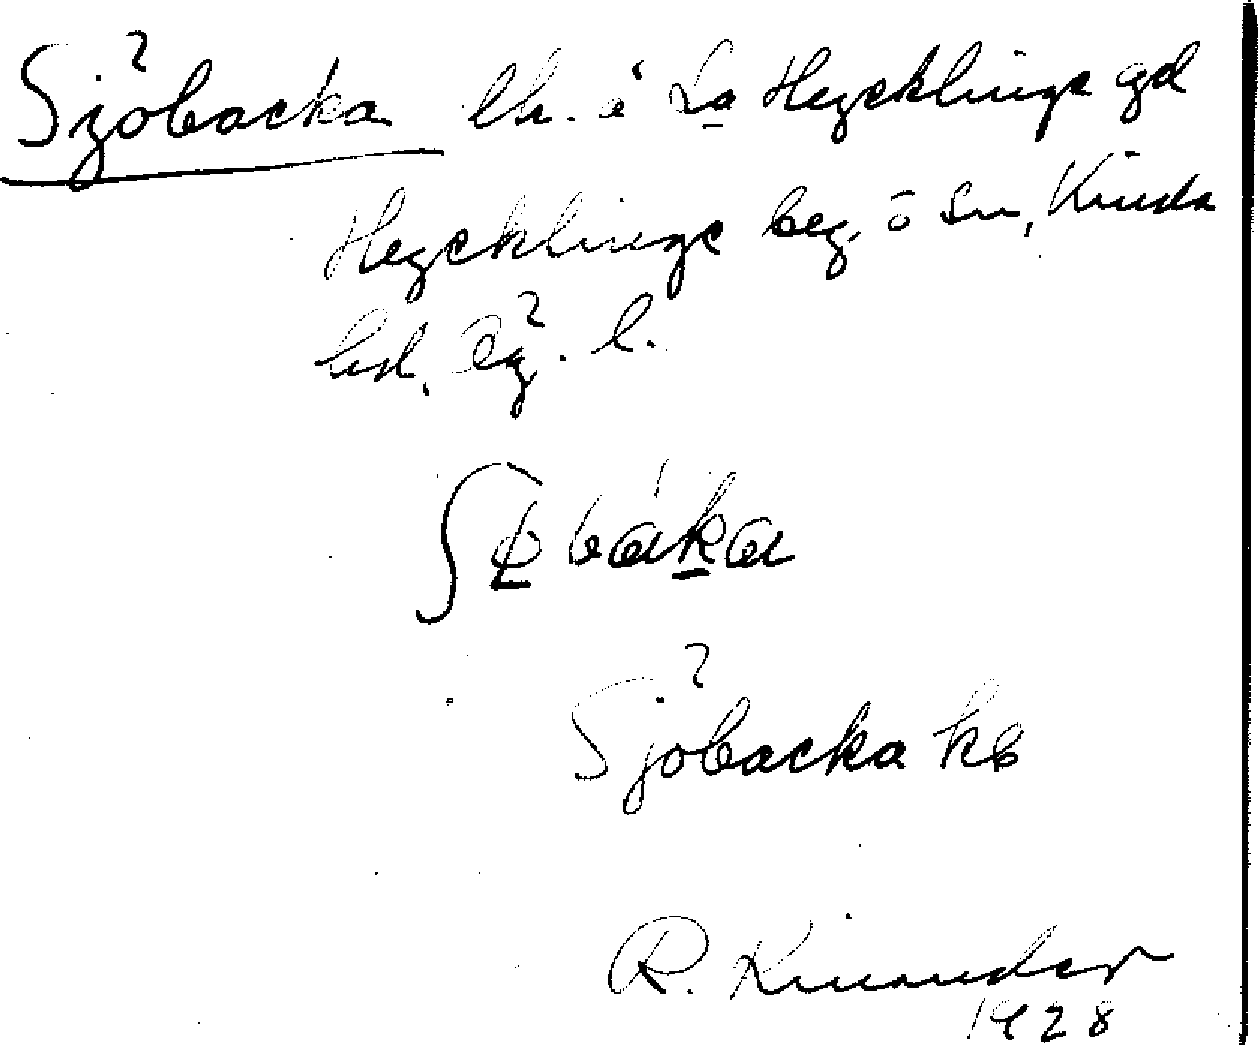 Sjöbacka lh. i La Hycklinge gd
Hycklinge beg. ö sn, Kinda
hd. Ög. l.
Sjöbacka kb
R. Kinander
1928